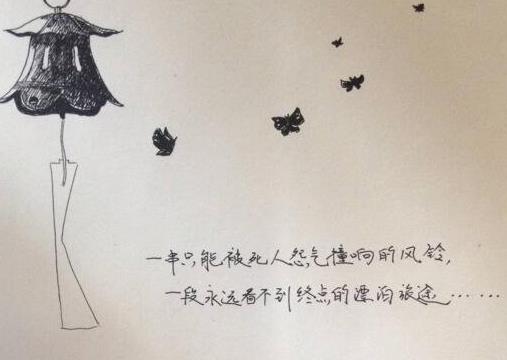 一串只能被死人怨气撞响的风铃,
一段永远看不到终点的漂泊旅途……